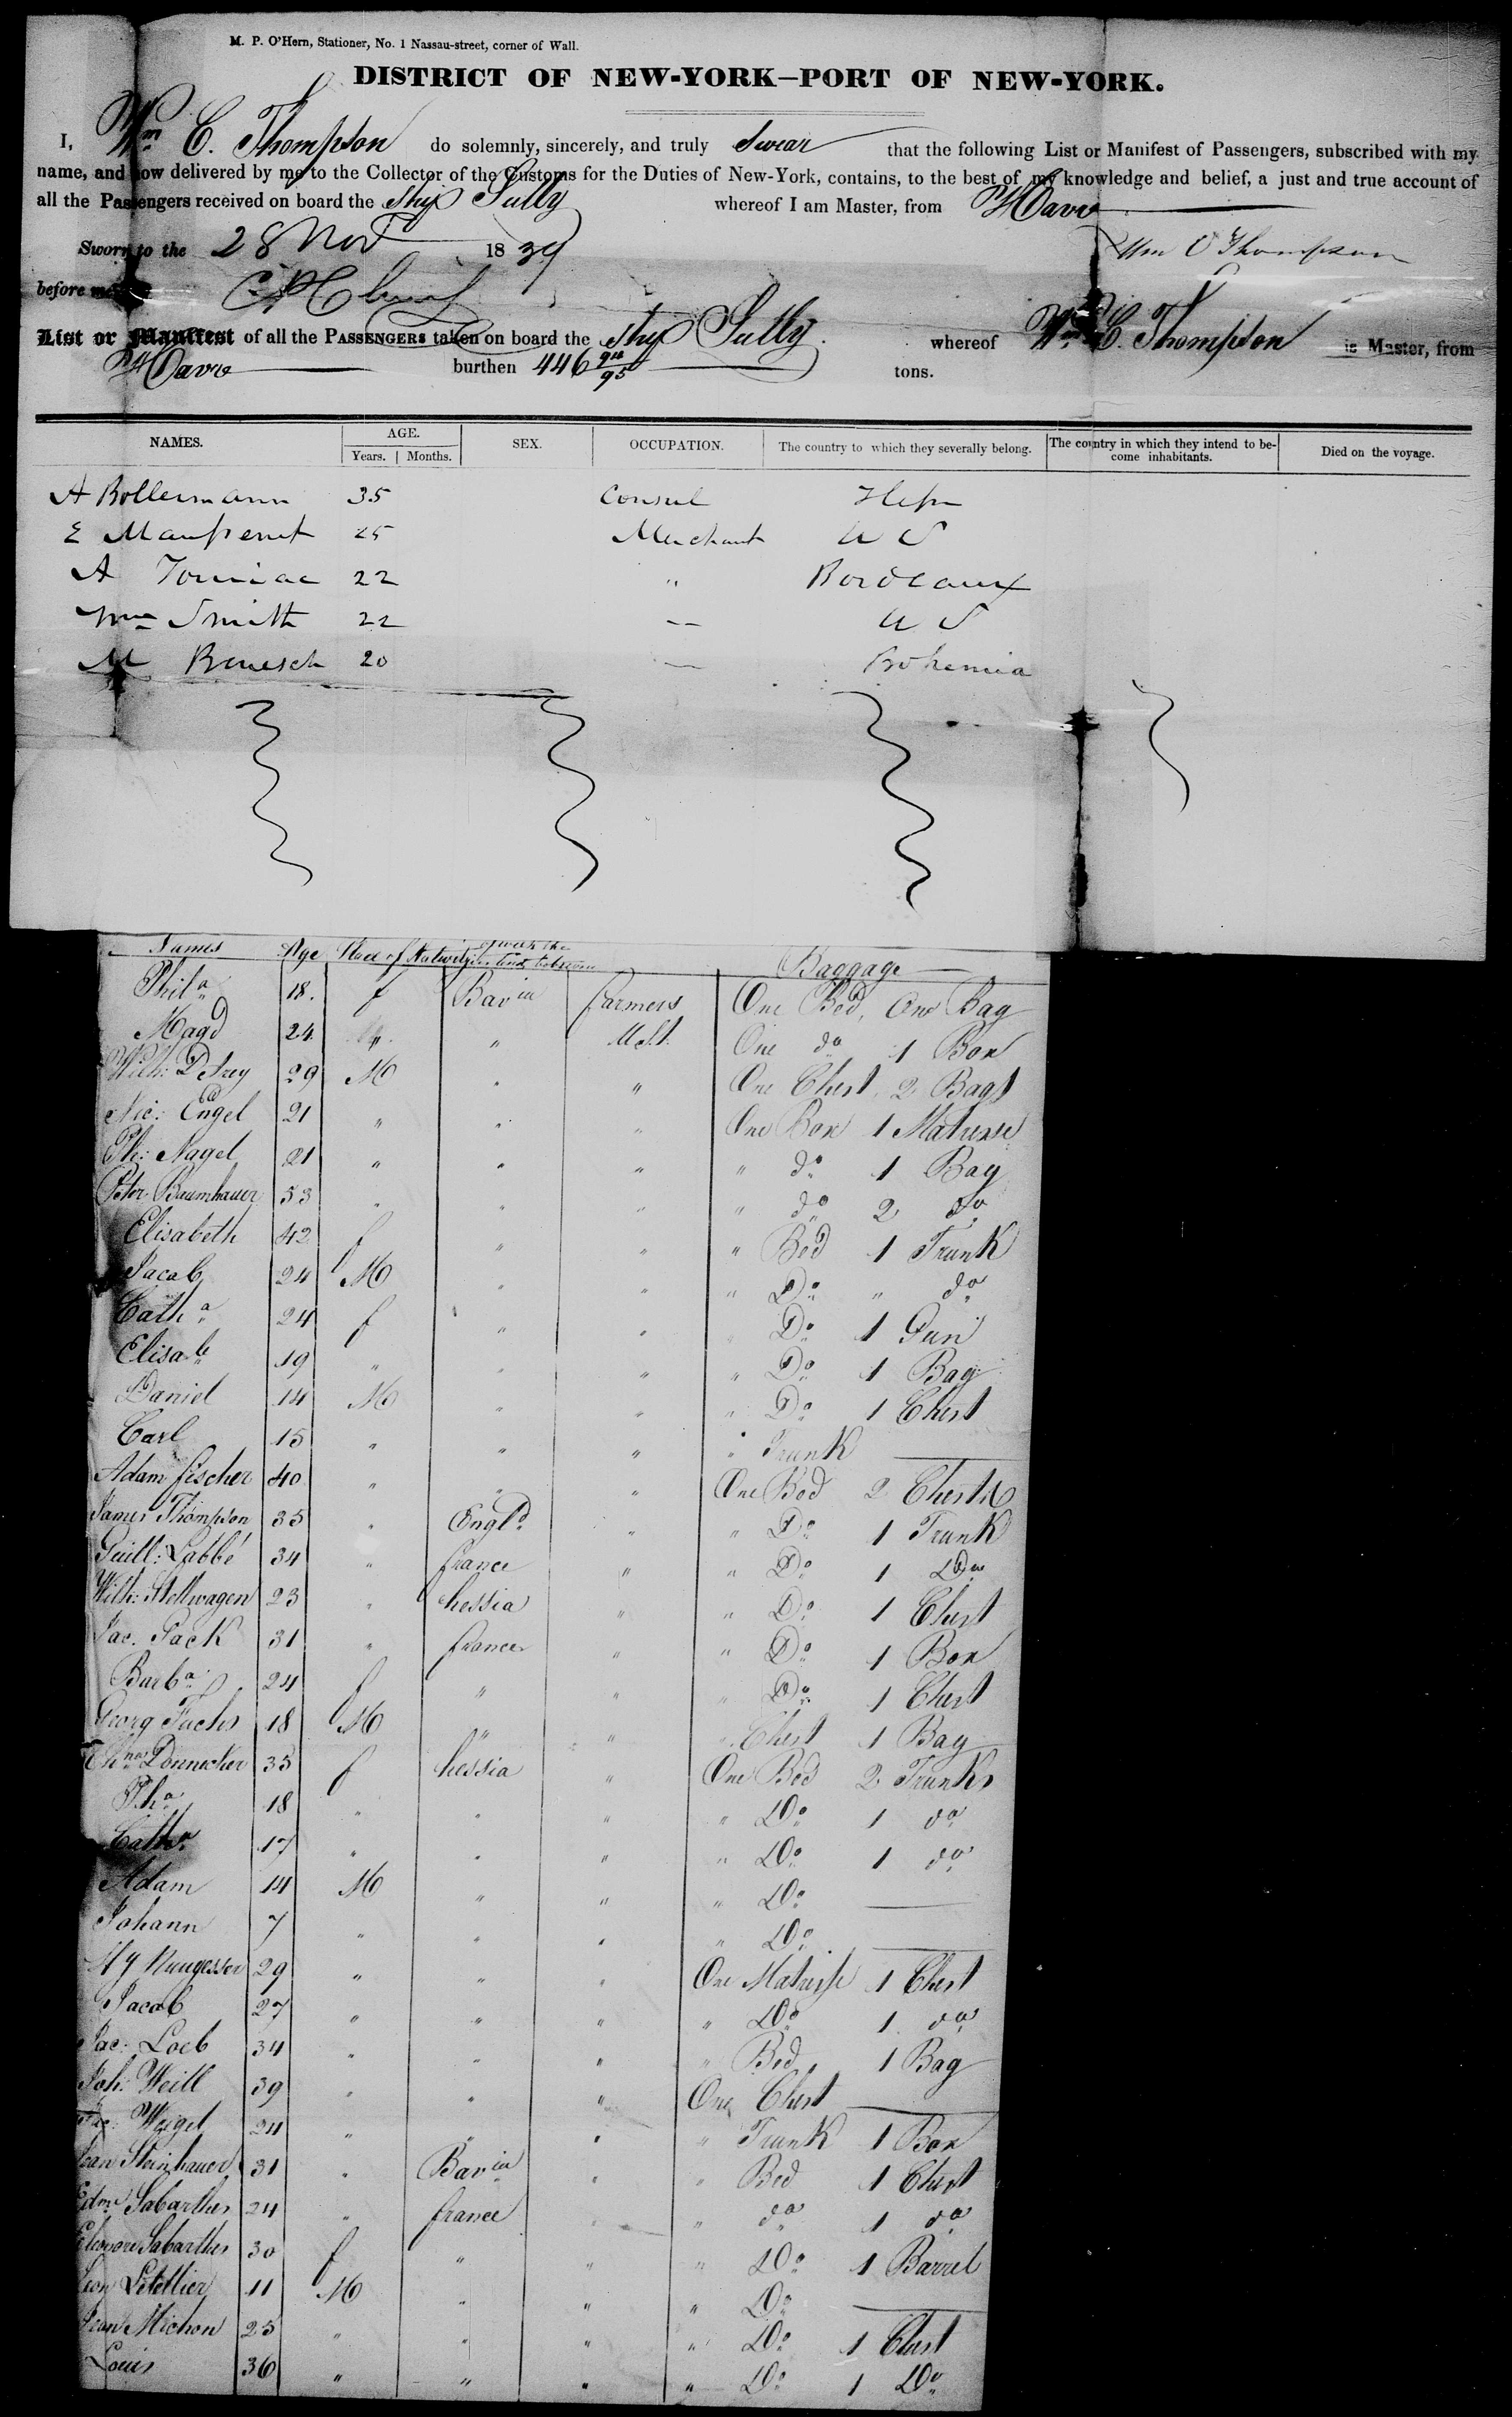 M. P. O'Hern, Stationer, No. 1 Nassau-street, corner of Wall.
DISTRICT OF NEW-YORK—PORT OF NEW-YORK.
I, Wm C. Thompson do solemnly, sincerely, and truly Swear that the following List or Manifest of Passengers, subscribed with my
name, and now delivered by me to the Collector of the Customs for the Duties of New-York, contains, to the best of my knowledge and belief, a just and true account of
all the Passengers received on board the Ship Sully whereof I am Master, from Havre
Sworn to the 28 Nov 1839 Wm C Thompson
before me
List or Manifest of all the PASSENGERS taken on board the Ship Sully whereof Wm C. Thompson is Master, from
Havre burthen 446 94/95 tons.
NAMES. AGE. SEX. OCCUPATION. The country to which they severally belong. The country in which they intend to be- Died on the voyage.
Years. Months. come inhabitants.
A Bollermann 35 Consul
E 25 Merchant U S
A 22 " Bordeaux
Wm Smith 22 — U S
M Benesch 20 — Bohemia
Names Age Place of Nativity Baggage
Phila 18. f Bavia farmers One Bed, One Bag
Magd 24 " " One do 1 Box
Wilh: Detrey 29 M " " One Chest, 2 Bags
Nic: Engel 21 " " " One Box 1 Matrasse
Ph: Nagel 21 " " " " do 1 Bag
Peter Baumhauer 53 " " " " do 2 do
Elisabeth 42 f " " " Bed 1 Trunk
Jacab 24 M " " " Do " do
Catha 24 f " " " Do 1 Gun
Elisab 19 " " " " Do 1 Bag
Daniel 14 M " " " Do 1 Chest
Carl 15 " " " " Trunk
Adam fischer 40 " " " One Bed 2 Chests
James Thompson 35 " Engld " " Do 1 Trunk
Guill: Labbé 34 " france " " Do 1 Do
Wilh: Stellwagen 23 " hessia " " Do 1 Chest
Jac. Pack 31 " france " " Do 1 Box
Barba 24 f " " " Do 1 Chest
Georg Fuchs 18 M " " " Chest 1 Bag
Donnecker 35 f hessia " One Bed 2 Trunks
Pha 18 " " " " Do 1 do
Catha 17 " " " " Do 1 do
Adam 14 M " " " Do
Johann 7 " " " " Do
Nungesser 29 " " " One Matrasse 1 Chest
Jacob 27 " " " " Do 1 do
Jac: Loeb 34 " " " " Bed 1 Bag
Joh: Weill 39 " " " One Chest
Weigel 24 " " " " Trunk 1 Box
Jean Steinhauer 31 " Bavia " " Bed 1 Chest
Edme Sabarthes 24 " france " " do 1 do
Eleonore Sabarthes 30 f " " " Do 1 Barrel
Leon Letellier 11 M " " " Do
Jean Michon 25 " " " " Do 1 Chest
Louis 36 " " " " Do 1 Do